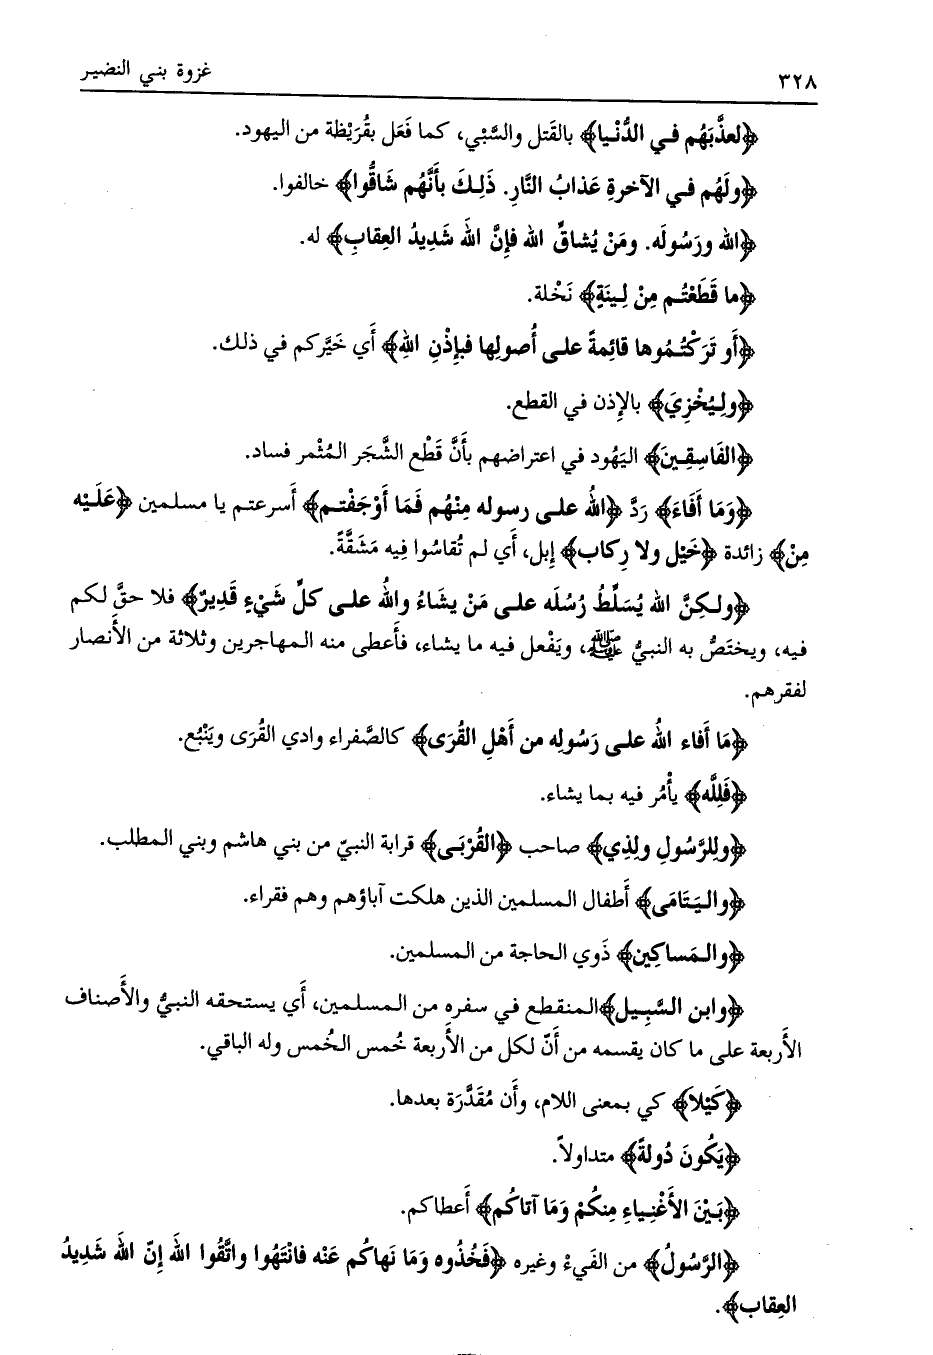 ٣٢٨ غزوة بني النضير
﴿لعذَّبَهُم في الدُّنْيا﴾ بالقَتل والسَّبْي، كما فَعَل بقُرَيْظة من اليهود.
﴿ولَهُم في الآخرةِ عَذابُ النَّارِ. ذَلِكَ بأَنَّهُم شَاقُّوا﴾ خالفوا.
﴿الله ورَسُولَه. ومَنْ يُشاقِّ الله فإِنَّ الله شَدِيدُ العِقابِ﴾ له.
﴿ما قَطَعْتُم مِنْ لِينَةٍ﴾ نَخْلة.
﴿أَو تَرَكْتُمُوها قائِمةً على أُصولِها فبإِذْنِ اللهِ﴾ أَي خَيَّركم في ذلك.
﴿ولِيُخْزِيَ﴾ بالإِذن في القطع.
﴿الفَاسِقِينَ﴾ اليَهُود في اعتراضهم بأَنَّ قَطْع الشَّجَر المُثْمر فساد.
﴿وَمَا أَفَاءَ﴾ رَدَّ ﴿اللهُ على رسوله مِنْهُم فَمَا أَوْجَفْتم﴾ أَسرعتم يا مسلمين ﴿عَلَيْه
مِنْ﴾ زائدة ﴿خَيْل ولا رِكاب﴾ إبل، أَي لم تُقاسُوا فيه مَشَقَّةً.
﴿ولكِنَّ الله يُسَلِّطُ رُسُلَه على مَنْ يشَاءُ واللهُ على كلِّ شَيْءٍ قَدِيرٌ﴾ فلا حقَّ لكم
فيه، ويختَصُّ به النبيُّ ﷺ، ويَفْعل فيه ما يشاء، فأَعطى منه المهاجرين وثلاثة من الأَنصار
لفقرهم.
﴿مَا أَفاء اللهُ على رَسُولِه من أَهْلِ القُرَى﴾ كالصَّفراء وادي القُرَى ويَنْبُع.
﴿فَلِلَّه﴾ يأْمُر فيه بما يشاء.
﴿ولِلرَّسُولِ ولِذِي﴾ صاحب ﴿القُرْبَى﴾ قرابة النبيّ من بني هاشم وبني المطلب.
﴿واليَتَامَى﴾ أَطفال المسلمين الذين هلكت آباؤهم وهم فقراء.
﴿والمَساكِين﴾ ذَوي الحاجة من المسلمين.
﴿وابن السَّبِيل﴾المنقطع في سفره من المسلمين، أَي يستحقه النبيُّ والأَصناف
الأَربعة على ما كان يقسمه من أَنّ لكل من الأَربعة خُمس الخُمس وله الباقي.
﴿كَيْلا﴾ كي بمعنى اللام، وأَن مُقَدَّرَة بعدها.
﴿يَكُونَ دُولةً﴾ متداولاً.
﴿بَيْنَ الأَغْنِياءِ مِنكُمْ وَمَا آتاكُم﴾ أَعطاكم.
﴿الرَّسُولُ﴾ من الفَيءْ وغيره ﴿فَخُذُوه وَمَا نَهاكُم عَنْه فانْتَهُوا واتَّقُوا الله إِنّ الله شَدِيدُ
العِقاب﴾.